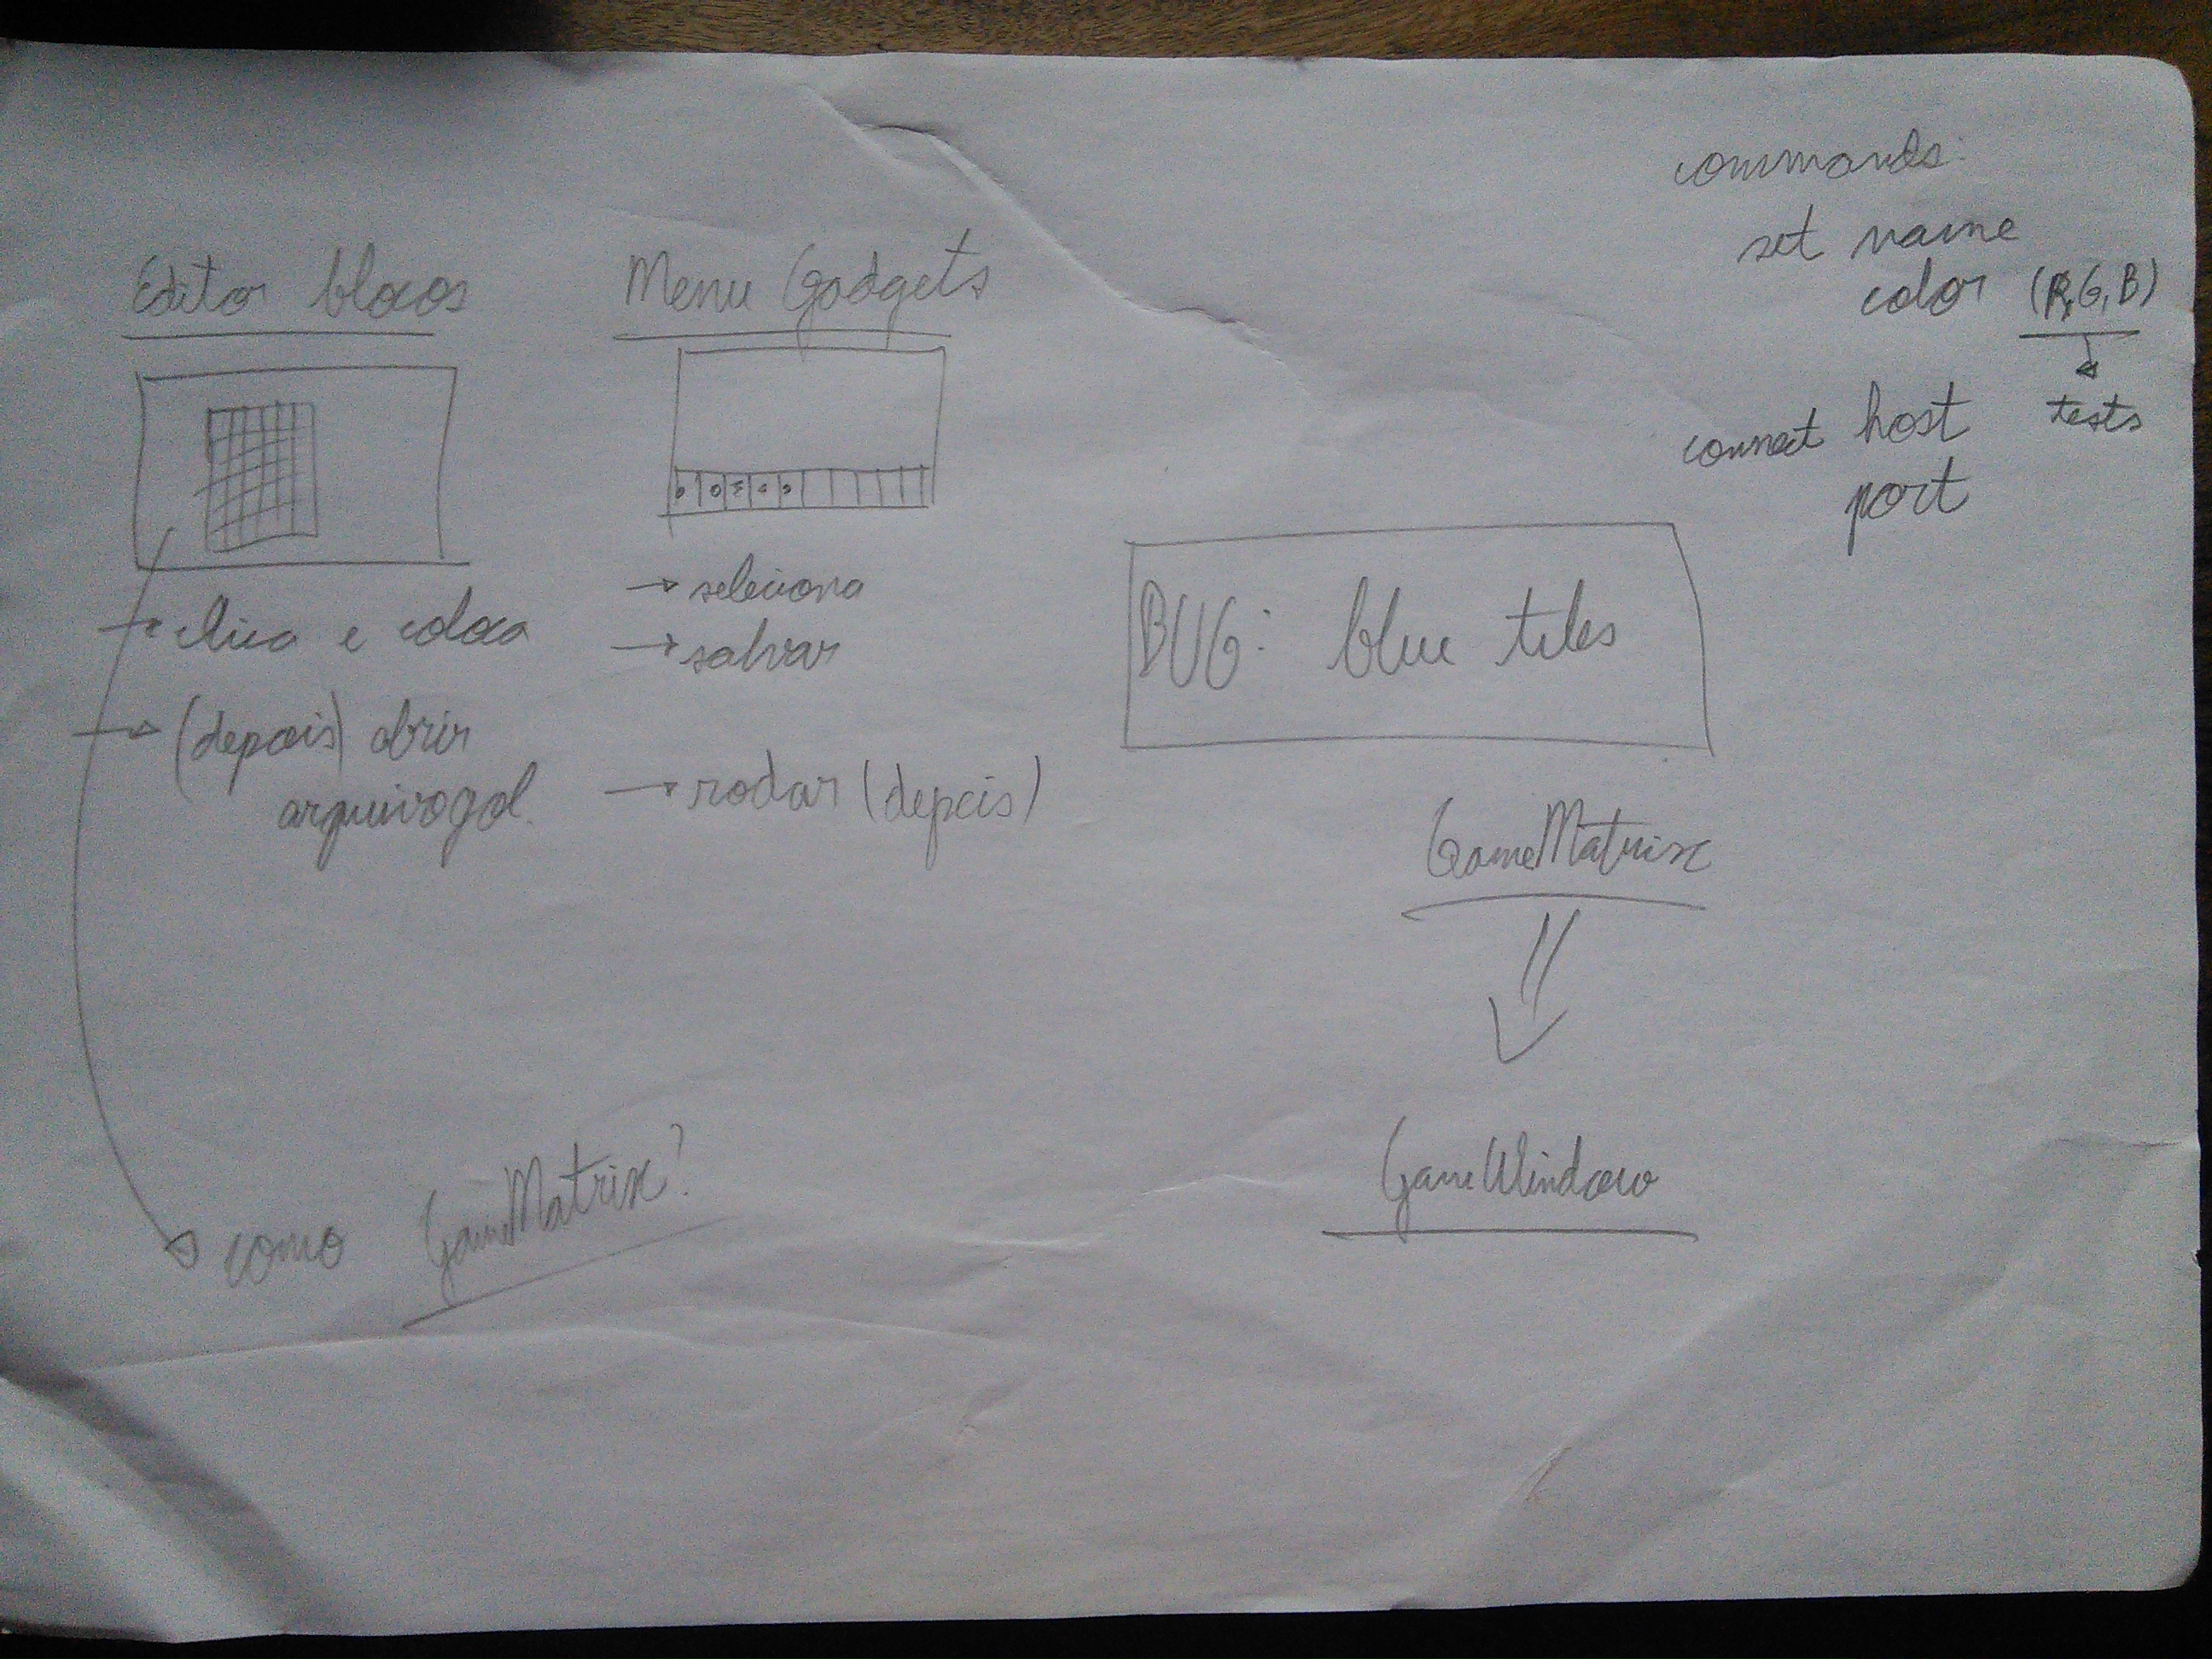 Editor blocos
→ clica e coloca
→ (depois) abrir
arquivo gol.
como GameMatrix?
Menu Gadgets
→ seleciona
→ salvar
→ rodar (depois)
commands:
set name
color (R,G,B)
tests
connect host
port
BUG: blue tiles
GameMatrix
GameWindow